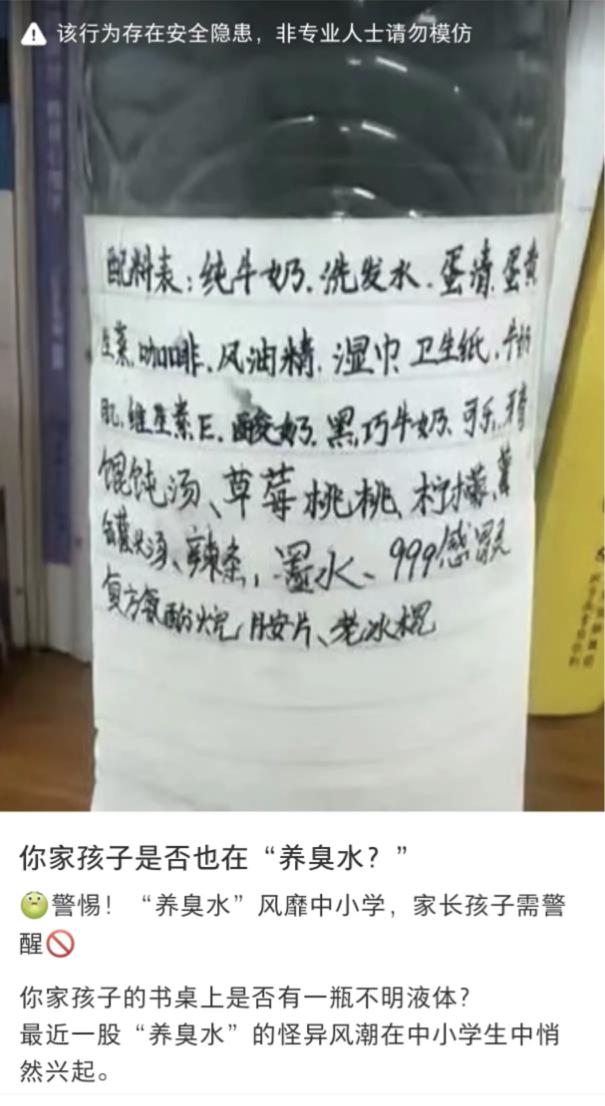 该行为存在安全隐患，非专业人士请勿模仿
配料表：纯牛奶.洗发水.蛋清.蛋黄
生菜.咖啡.风油精.湿巾.卫生纸.牛奶
肌.维生素E.酸奶.黑巧牛奶.可乐.牙膏
馄饨汤、草莓桃桃、柠檬、
汤、辣条，墨水、999感冒灵
复方氨酚烷胺片、老冰棍
你家孩子是否也在“养臭水？”
警惕！“养臭水”风靡中小学，家长孩子需警
醒
你家孩子的书桌上是否有一瓶不明液体？
最近一股“养臭水”的怪异风潮在中小学生中悄
然兴起。